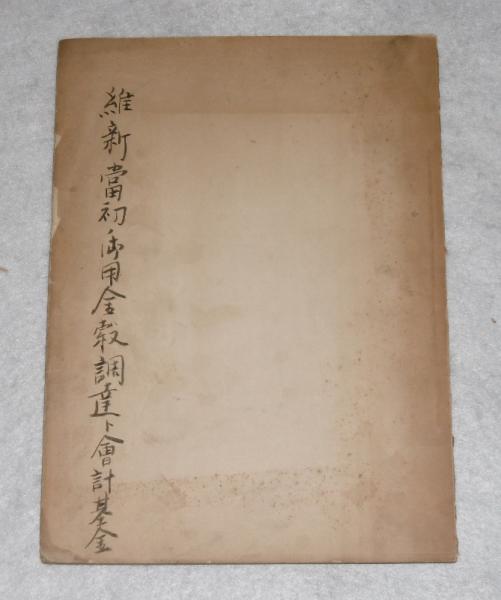 維新當初御用金穀調達ト會計基金